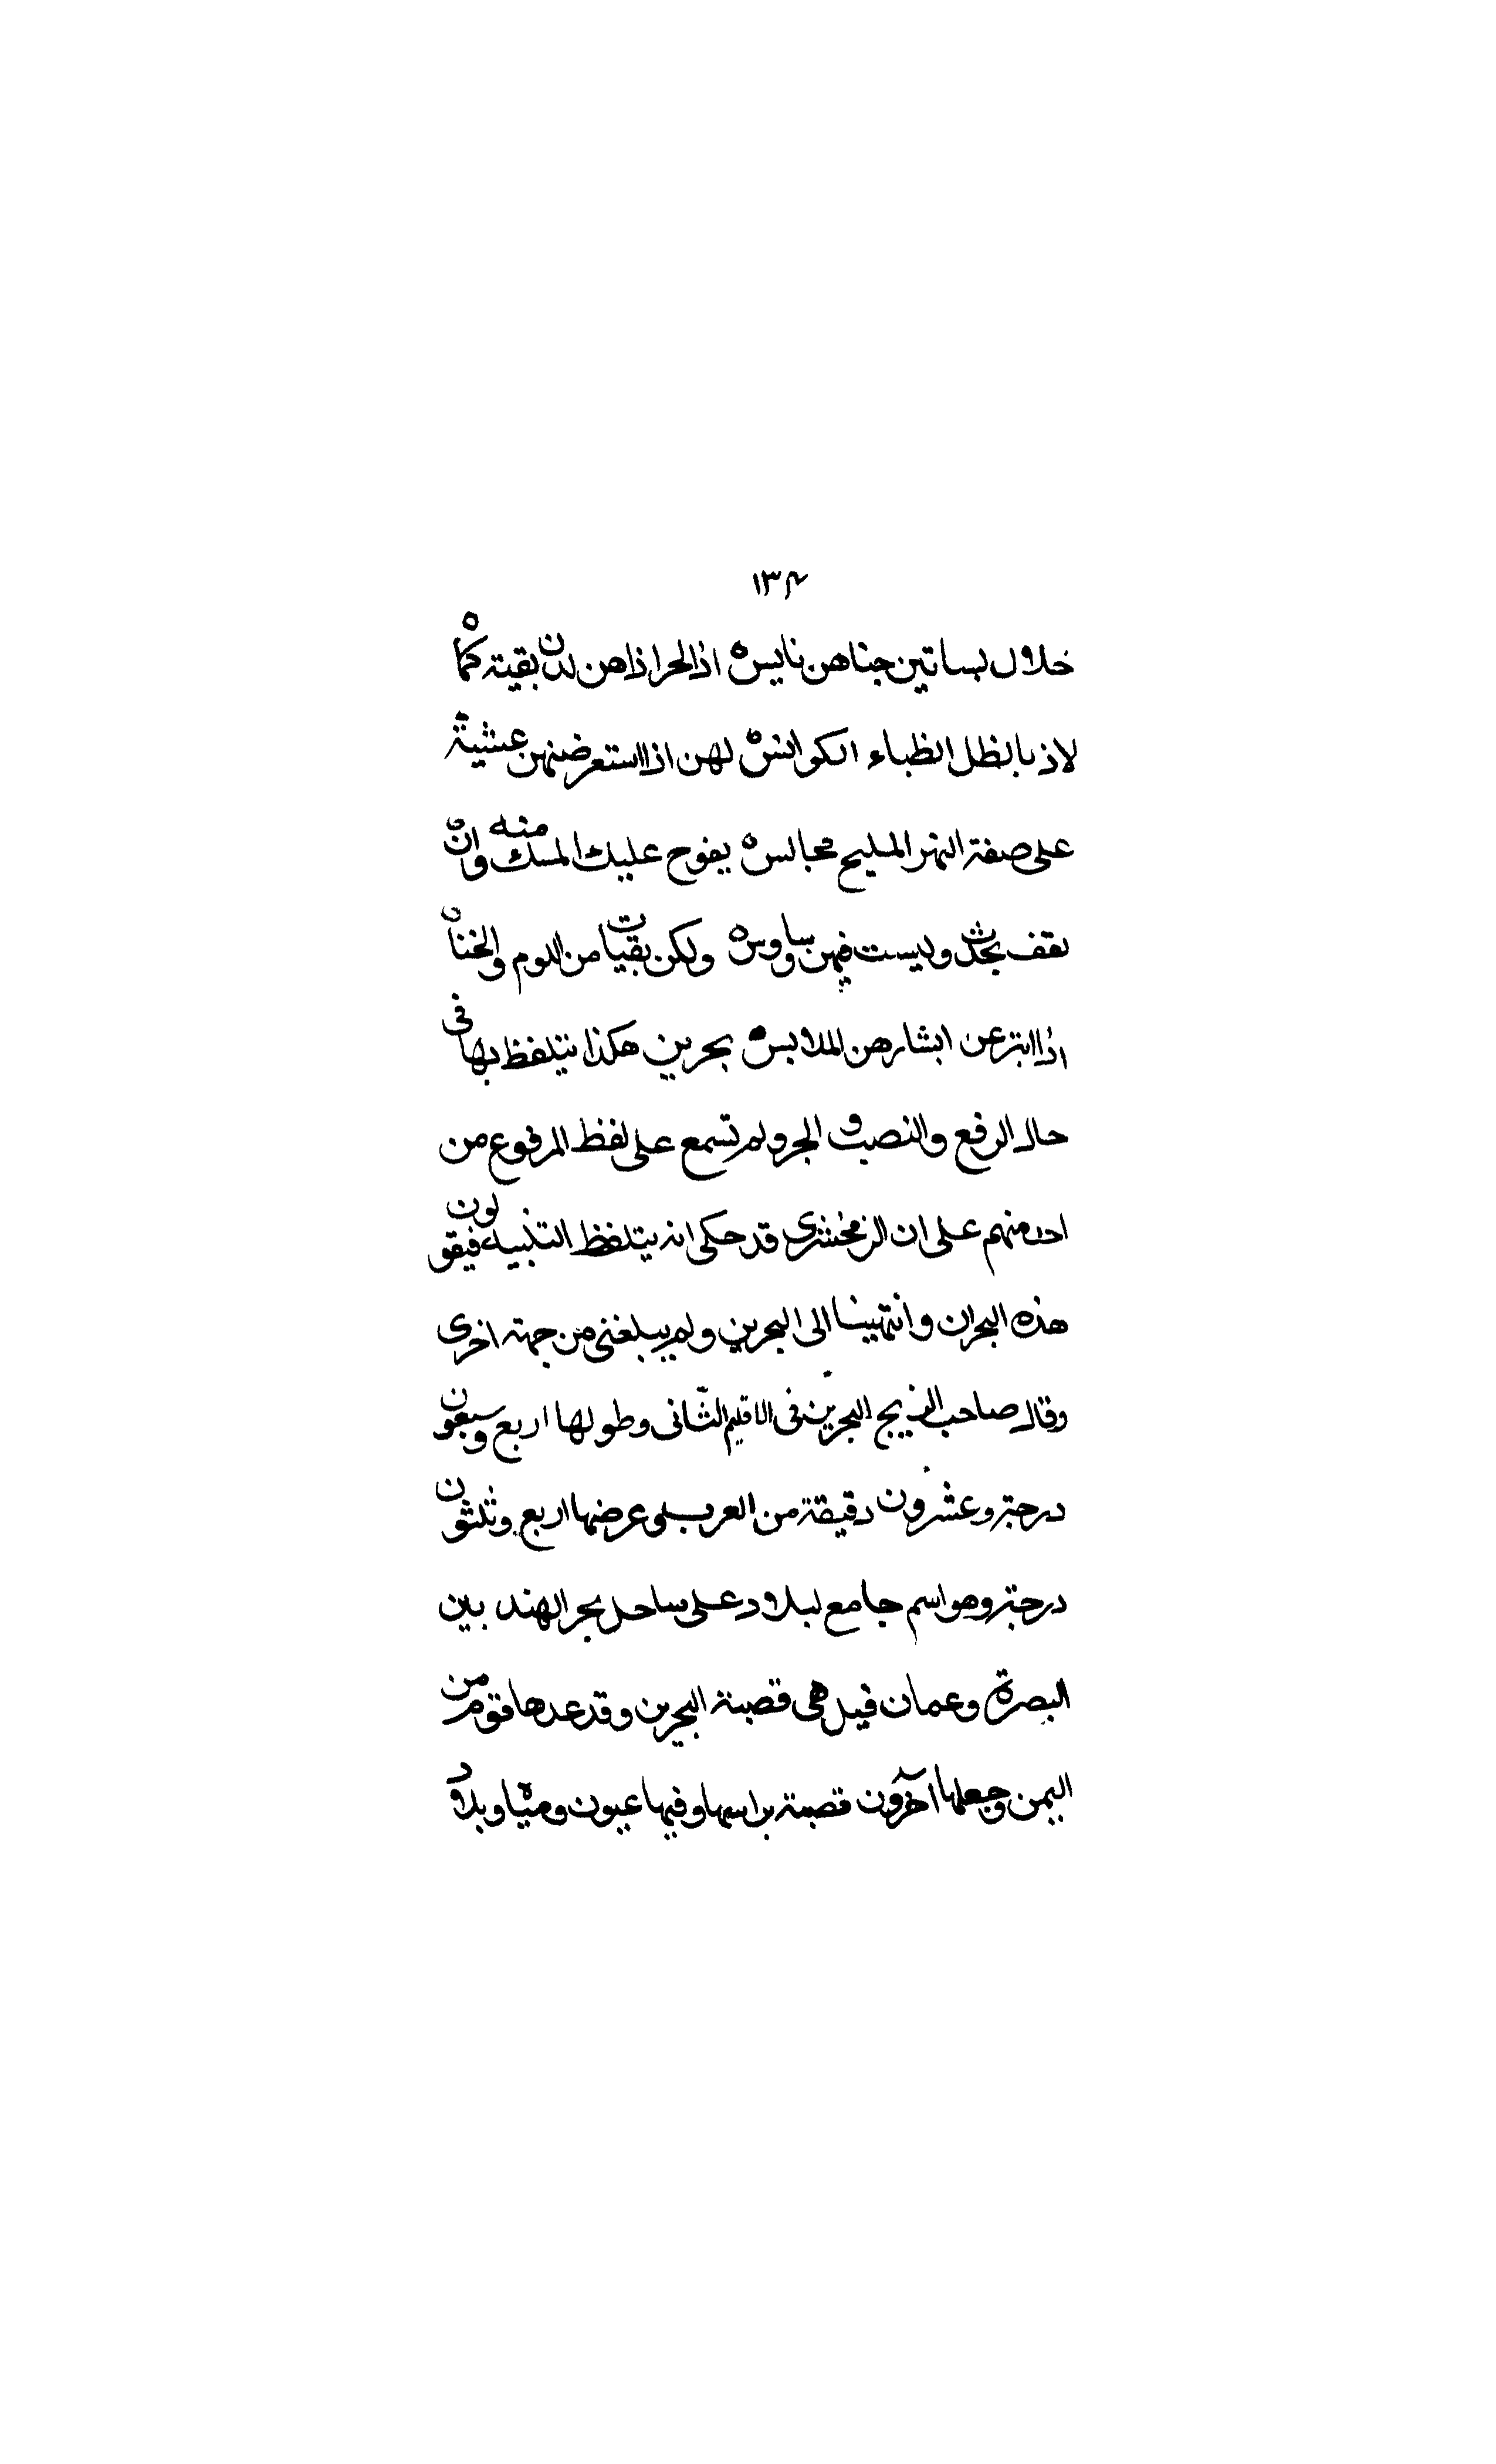 ١٣٤
خلال بساتين جناهن نايس ه اذ الحر اذاهن لدن بقيته كما ه
لاذ بالظل الظباء الكوانس ه لهن اذا استعرضنهن عشية
على صفة النهر المليح مجالس ه يفوح عليك المسك منه وان
تقف تحدث وليست فيهن وساوس ه ولكن بقيات من اللوم والخنا ه
اذا ابتز عن ابشارهن الملابس ه بحرين هكذا يتلفظ بها فى
حال الرفع والنصب والجر ولم تسمع على لفظ المرفوع من
احد منهم على ان الزمخشرى قد حكى انه يتلفظ التثنية فيقولون
هذه البحران وانتهينا الى البحرين ولم يبلغنى من جهته اخرى
وقال صاحب الزيج البحرين فى الاقليم الثّانى وطولها اربع وسبعون
درجة وعشرون دقيقة من العرب وعرضها اربع وثلثون
درجة وهو اسم جامع لبلاد على ساحل بحر الهند بين
البصرة وعمان قيل هى قصبة البحرين وقد عدها قوم من
اليمن وجعلها آخرون قصبة براسها وفيها عيون ومياه وبلاد